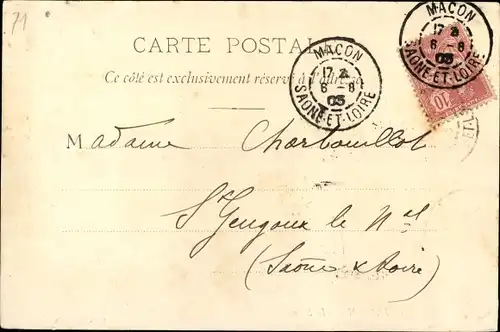 71
CARTE POSTALE
Ce côté est exclusivement réservé à l'adresse
MACON
17 2
6 - 8
03
SAONE-ET-LOIRE
MACON
17 2
6 - 8
03
SAONE-ET-LOIRE
10
Madame Charbouillot
St Gengoux le Nal
(Saône & Loire)